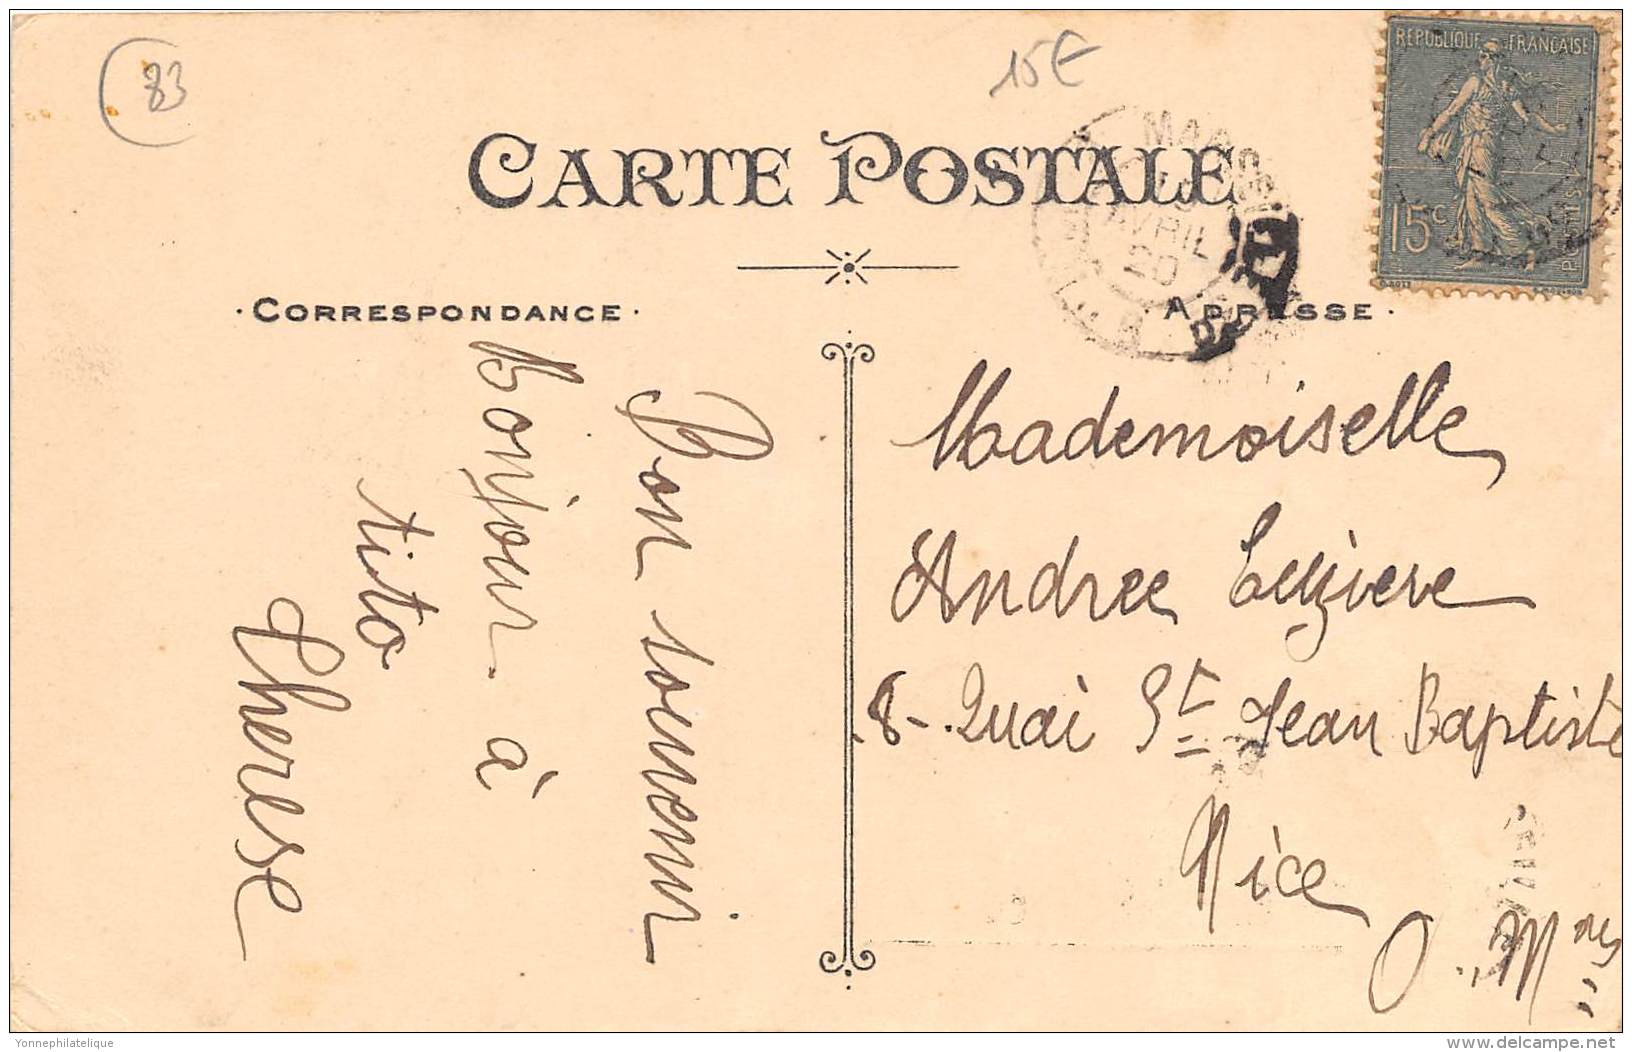 83
15€
RÉPUBLIQUE FRANÇAISE
15c
POSTES
CARTE POSTALE
AVRIL
20
· CORRESPONDANCE ·
· ADRESSE ·
Bon souvenir
Bonjour à
tito
Therese
Mademoiselle
Andree
8 - Quai St Jean Baptiste
Nice
Yonnephilatelique
www.delcampe.net